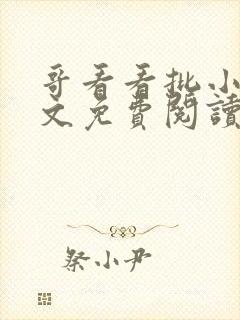 哥看看批小
文免費閱讀
祭小尹